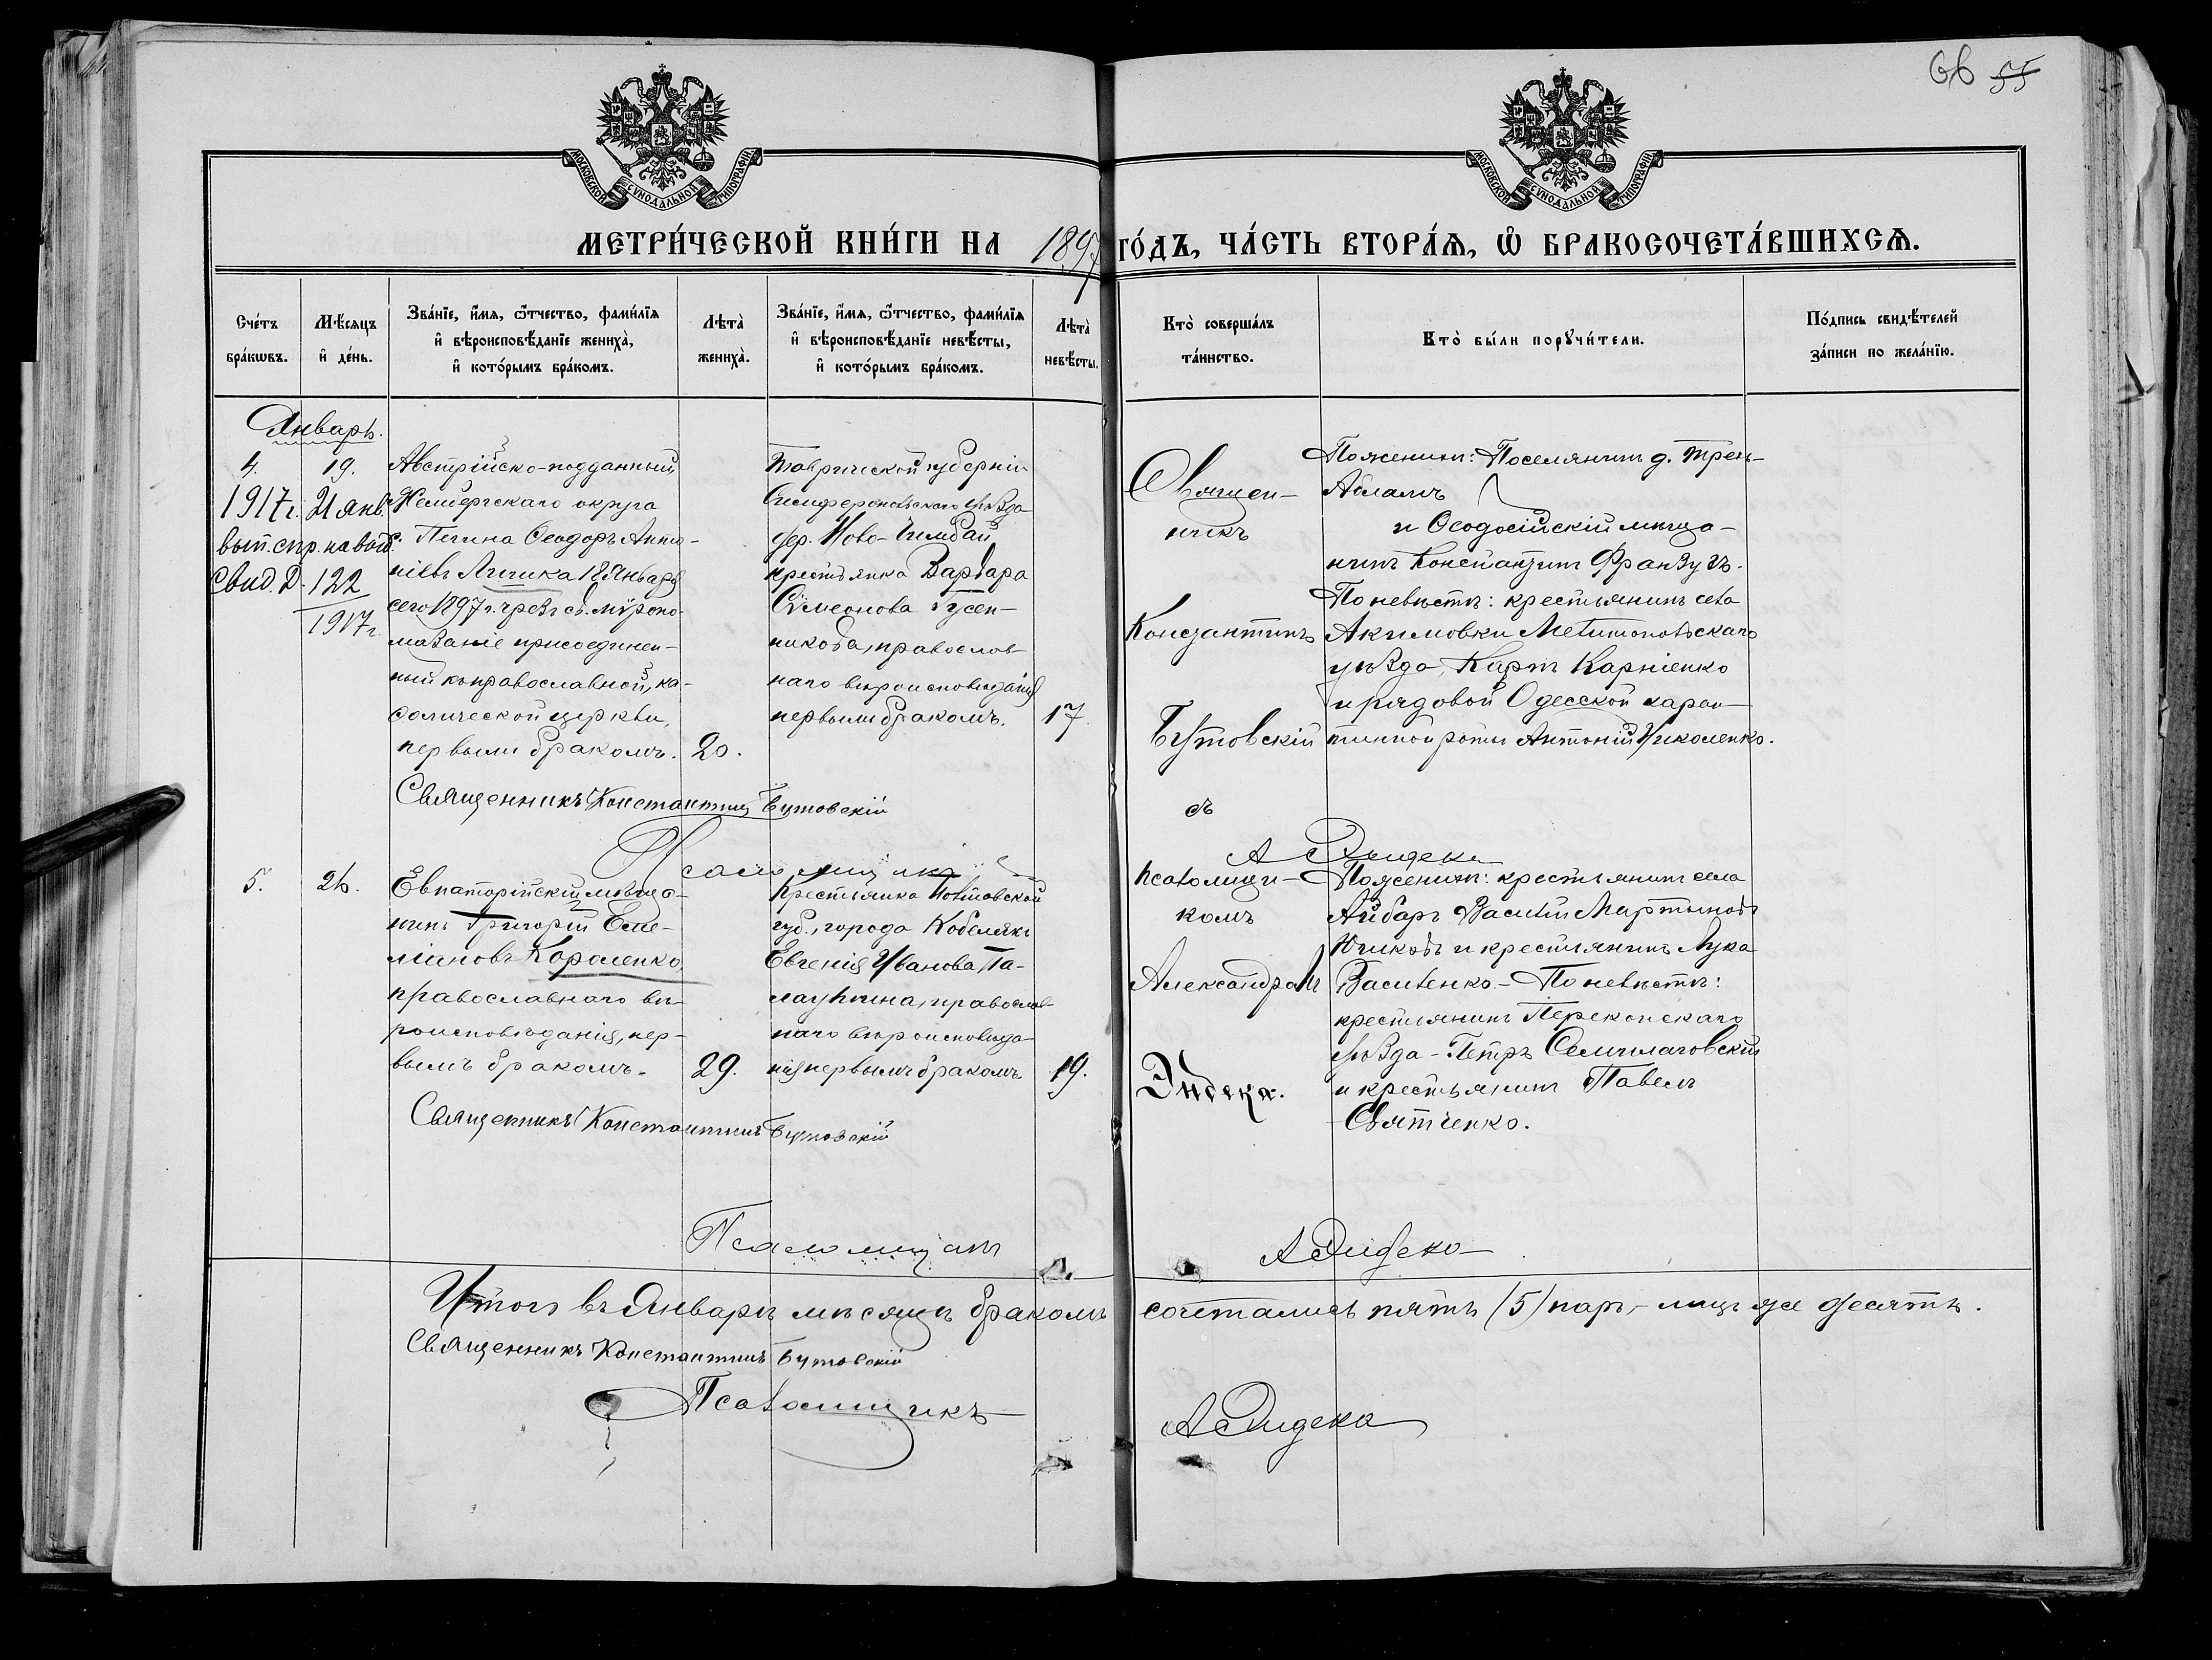 66 55
МОСКОВСКОЙ СѴНОДАЛЬНОЙ ТИПОГРАФІИ
МОСКОВСКОЙ СѴНОДАЛЬНОЙ ТИПОГРАФІИ
МЕТРИ́ЧЕСКОЙ КНИ́ГИ НА 1897 ГО́ДЪ, ЧА́СТЬ ВТОРА́Ѧ, Ѽ БРАКОСОЧЕТА́ВШИХСѦ.
Сче́тъ
бра́кѡвъ.
Мѣ́сѧцъ
и҆ де́нь.
Зва́нїе, и҆́мѧ, ѻ҆́тчество, фами́лїѧ
и҆ вѣроисповѣ́данїе жениха̀,
и҆ кото́рымъ бра́комъ.
Лѣта̀
жениха̀.
Зва́нїе, и҆́мѧ, ѻ҆́тчество, фами́лїѧ
и҆ вѣроисповѣ́данїе невѣ́сты,
и҆ кото́рымъ бра́комъ.
Лѣта̀
невѣ́сты.
Кто̀ соверша́лъ
та́инство.
Кто̀ бы́ли порꙋчи́тели.
По́дпись свидѣ́телей
за́писи по жела́нїю.
Январь.
4.
19.
1917 г. 21 янв.
вып. спр. на выд.
свид. Д. 122
1917 г.
Австрійско-подданный
округа
Ѳеодоръ Анто-
ніевъ 18 Января
сего 1897 г. чрезъ св. мѵропо-
мазаніе присоединен-
ный къ православной, ка-
ѳолической церкви,
первымъ бракомъ.
20.
Таврической губерніи
Симферопольскаго уѣзда
дер. Ново-
крестьянка Варвара
Сѵмеонова Гусен-
никова, православ-
наго вѣроисповѣданія
первымъ бракомъ.
17.
Священ-
никъ
Константинъ
Бутовскій
съ
псаломщи-
комъ
Александромъ
Эндека.
По женихѣ: Поселянинъ д.
Абламъ
и Ѳеодосійскій мѣща-
нинъ Константинъ Французъ.
По невѣстѣ: крестьянинъ села
Акимовки Мелитопольскаго
уѣзда, Карпъ Карпіенко
и рядовой Одесской каран-
тинной роты Антоній Николенко.
Священникъ Константинъ Бутовскій
Псаломщикъ А Эндека
5.
26.
Евпаторійскій мѣща-
нинъ Григорій Еме-
ліановъ Короленко,
православнаго вѣ-
роисповѣданія, пер-
вымъ бракомъ.
29.
Крестьянка Полтавской
губ., города Кобелякъ
Евгенія Иванова Па-
лаухина, православ-
наго вѣроисповѣда-
нія первымъ бракомъ
19.
По женихѣ: крестьянинъ села
Айбаръ Василій Мартыновъ
и крестьянинъ Лука
Василенко. - По невѣстѣ:
крестьянинъ Перекопскаго
уѣзда - Петръ
и крестьянинъ Павелъ
Святченко.
Священникъ Константинъ Бутовскій
Псаломщикъ А Эндека
Итого въ Январѣ мѣсяцѣ бракомъ сочеталось пять (5) паръ, - лицъ же десять.
Священникъ Константинъ Бутовскій
Псаломщикъ А Эндека